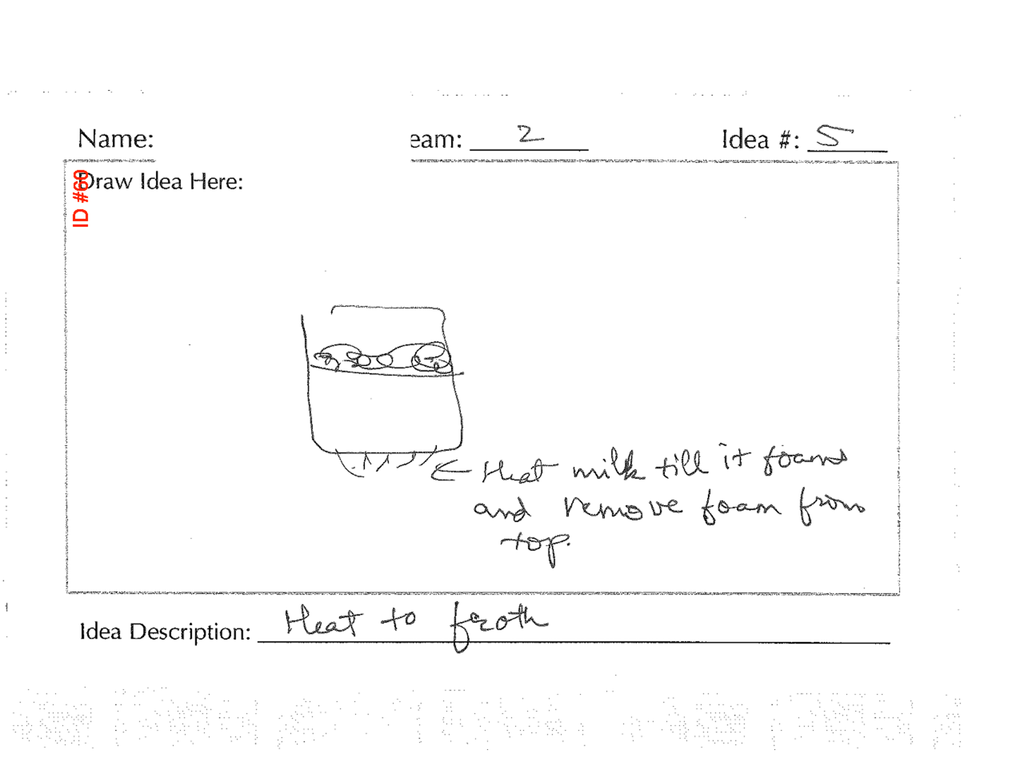 Name:
eam: 2
Idea #: 5
ID #69
Draw Idea Here:
Heat milk till it foams
and remove foam from
top.
Idea Description: Heat to froth